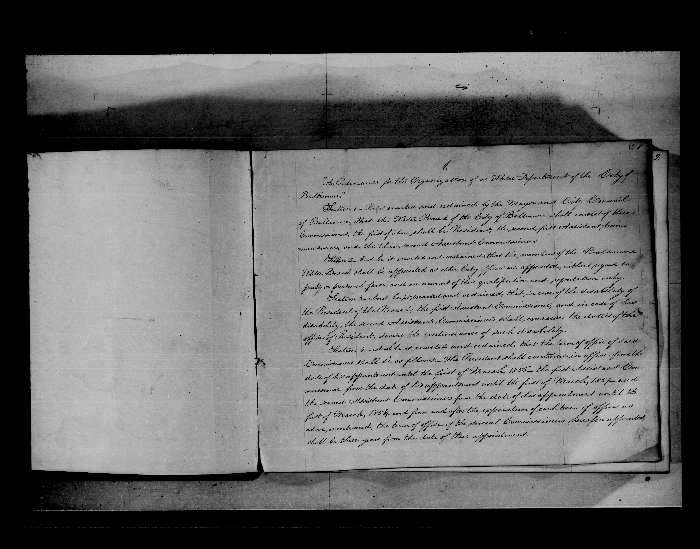 1.
"An Ordinance for the Organization of a Water Department of the City of
Baltimore"
Section 1. Be it enacted and ordained by the Mayor and City Council
of Baltimore, that the Water Board of the City of Baltimore shall consist of three
Commissioners, the first of whom shall be President, the second first Assistant Com-
missioner, and the third, second Assistant Commissioner.
Section 2. And be it enacted and ordained that the members of the Baltimore
Water Board shall be appointed as other City Officers are appointed, without regard to
party or personal favor and on account of their qualification and reputation only.
Section 3. And be it enacted and ordained, that in case of the disability of
the President of the Board, the first Assistant Commissioner, and in case of his
disability, the second Assistant Commissioner shall exercise the duties of the
office of President, during the continuance of such disability.
Section 4. And be it enacted and ordained, that the term of office of said
Commissioners shall be as follows. The President shall continue in office from the
date of his appointment until the first of March, the first Assistant Com-
missioner from the date of his appointment until the first of March, and
the second Assistant Commissioner from the date of his appointment until the
first of March, and from and after the expiration of each term of office as
above mentioned, the term of office of the several Commissioners hereafter appointed
shall be three years from the date of their appointment.
2